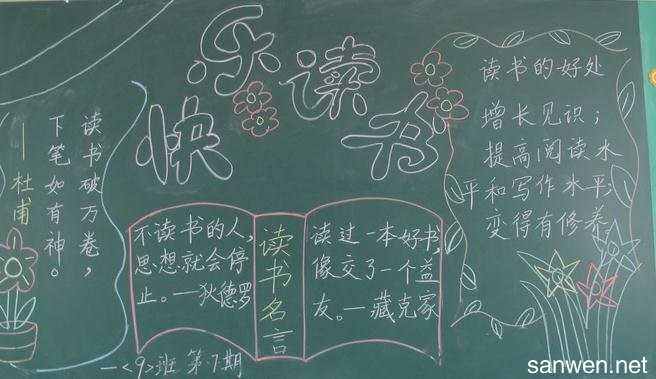 快乐读书
读书破万卷，
下笔如有神。
——杜甫
不读书的人，
思想就会停
止。—狄德罗
读书名言
读过一本好书，
像交了一个益
友。—藏克家
读书的好处
增长见识；
提高阅读水
平和写作水平；
变得有修养。
一<9>班 第·7期
sanwen.net